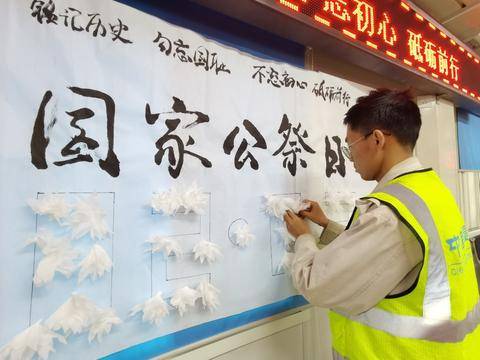 忘初心 砥砺前行
铭记历史 勿忘国耻 不忘初心 砥砺前行
国家公祭日
中